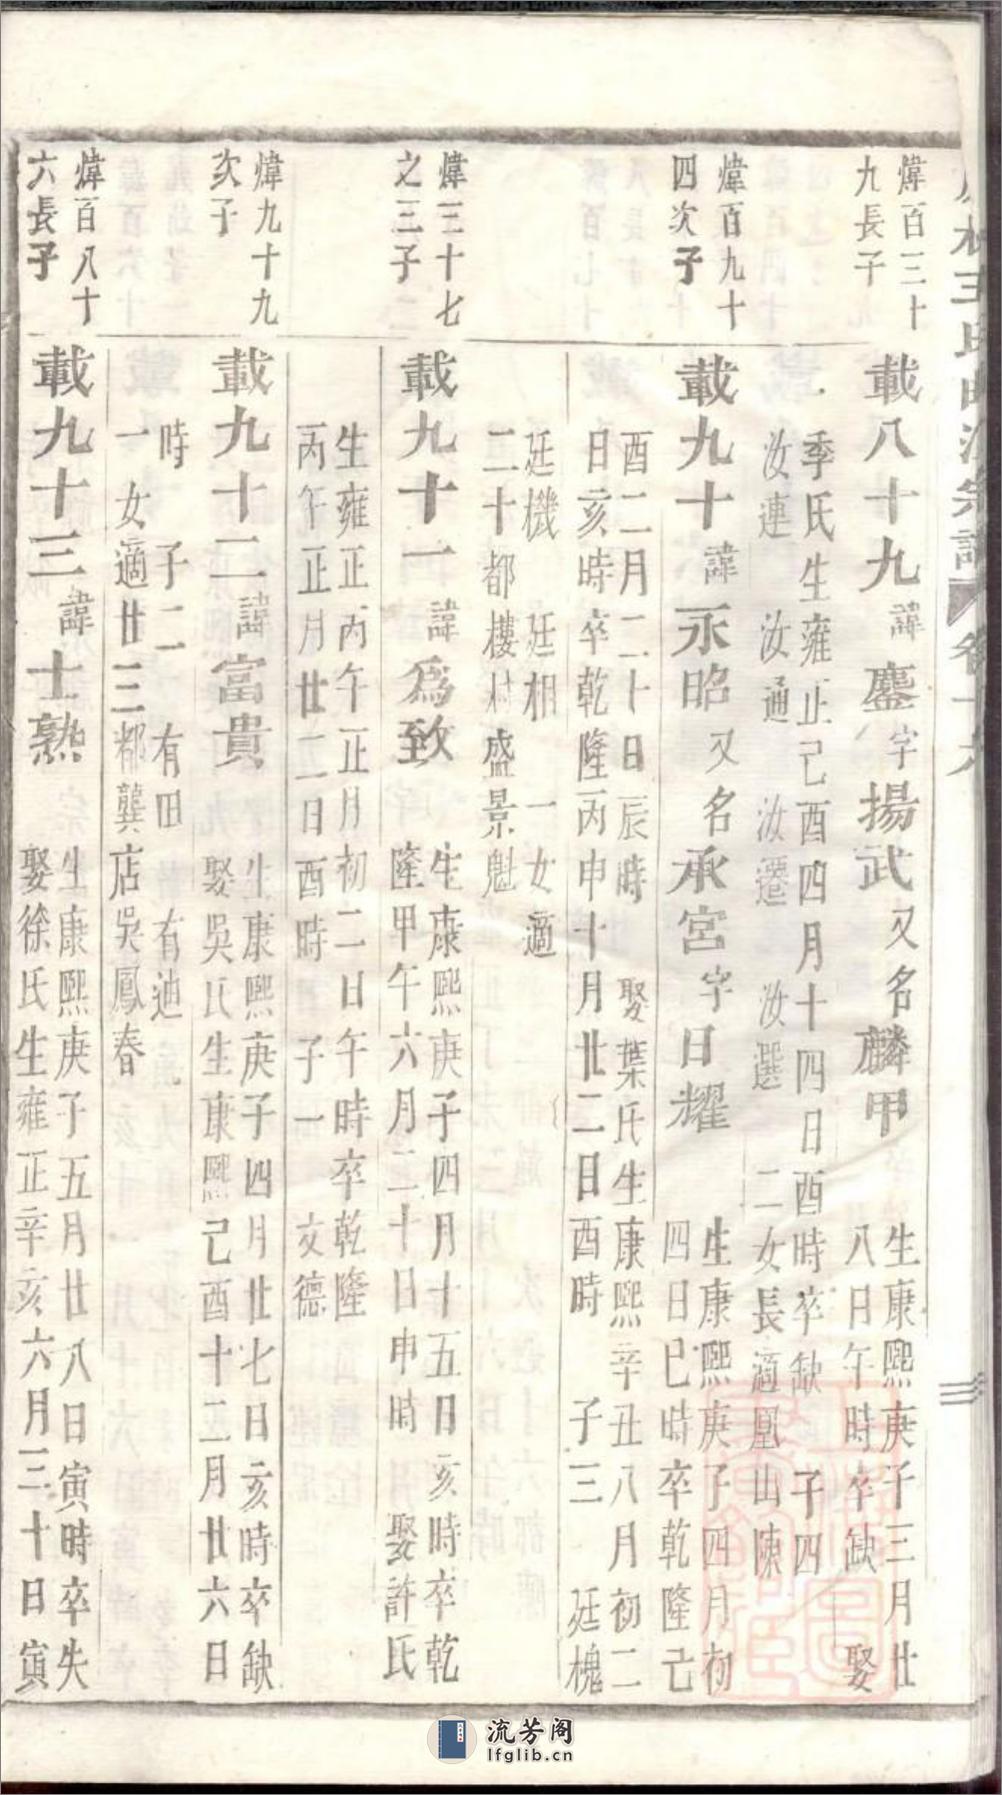 王氏
宗譜
卷十六
煒百三十
九長子
載八十九諱鏖字揚武又名麟甲
生康熙庚子三月廿
八日午時卒缺 娶
季氏生雍正己酉四月十四日酉時卒缺 子四
汝連 汝通 汝遷 汝選 二女長適鳳山陳
煒百九十
四次子
載九十諱永昭又名承宮字日耀
生康熙庚子四月初
四日巳時卒乾隆己
酉二月二十日辰時 娶葉氏生康熙辛丑八月初二
日亥時卒乾隆丙申十月廿二日酉時 子三 廷槐
廷機 廷相 一女適
二十都樓村盛景魁
煒三十七
之三子
載九十一諱為致
生康熙庚子四月十五日亥時卒乾
隆甲午六月二十日申時 娶許氏
生雍正丙午正月初二日午時卒乾隆
丙午正月廿二日酉時 子一 文德
煒九十九
次子
載九十二諱富貴
生康熙庚子四月廿七日亥時卒缺
娶吳氏生康熙己酉十二月廿六日
時 子二 有田 有迪
一女適廿三都龔店吳鳳春
煒百八十
六長子
載九十三諱士熟
生康熙庚子五月廿八日寅時卒失
娶徐氏生雍正辛亥六月三十日寅
流芳阁
lfglib.cn